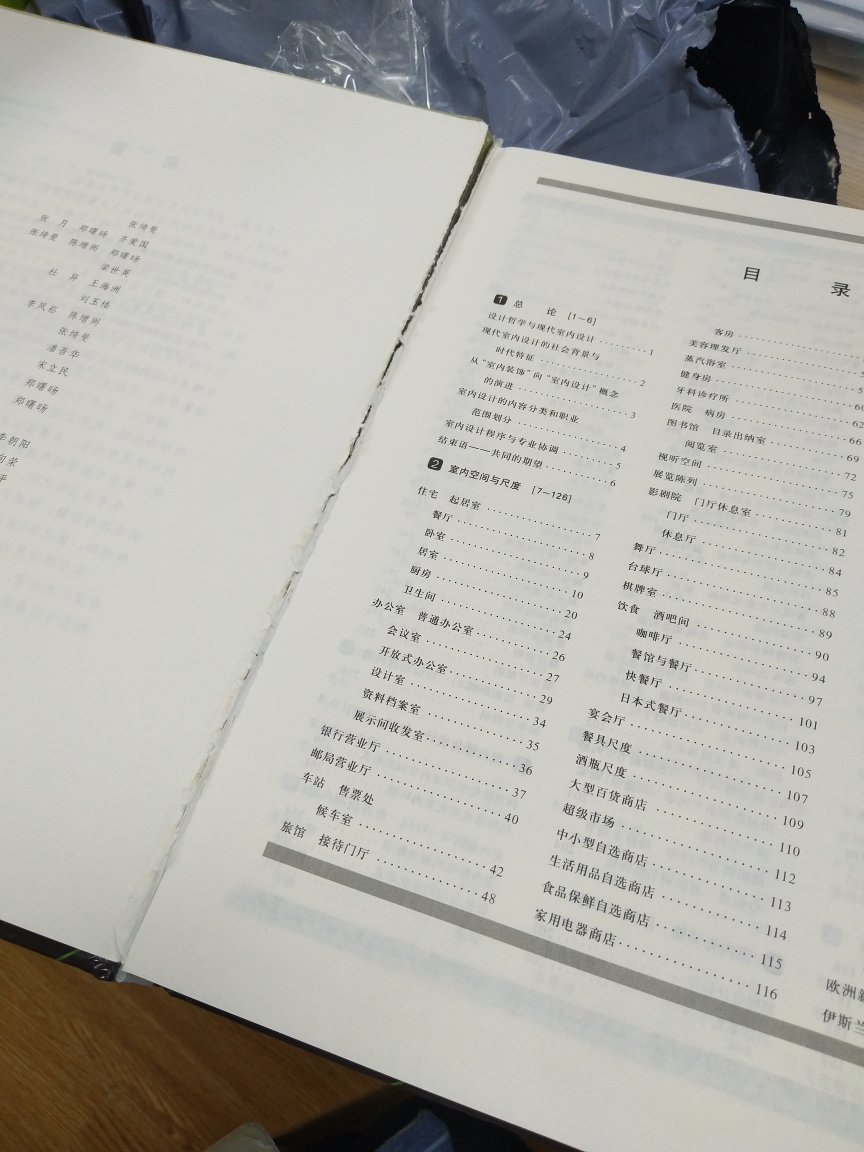 张绮曼
张 月 郑曙旸 齐爱国
张绮曼 陈增弼 郑曙旸
梁世英
杜 异 王海洲
刘玉楼
李凤崧 陈增弼
张绮曼
潘吾华
朱立民
郑曙旸
郑曙旸
李朝阳
目 录
1 总 论 [1~6]
设计哲学与现代室内设计 1
现代室内设计的社会背景与
时代特征 2
从“室内装饰”向“室内设计”概念
的演进 3
室内设计的内容分类和职业
范围划分 4
室内设计程序与专业协调 5
结束语——共同的期望 6
2 室内空间与尺度 [7~126]
住宅 起居室 7
餐厅 8
卧室 9
居室 10
厨房 20
卫生间 24
办公室 普通办公室 26
会议室 27
开放式办公室 29
设计室 34
资料档案室 35
展示间收发室 36
银行营业厅 37
邮局营业厅 40
车站 售票处
候车室 42
旅馆 接待门厅 48
客房
美容理发厅
蒸汽浴室
健身房 60
牙科诊疗所 62
医院 病房 66
图书馆 目录出纳室 69
阅览室 72
视听空间 75
展览陈列 79
影剧院 门厅休息室 81
门厅 82
休息厅 84
舞厅 85
台球厅 88
棋牌室 89
饮食 酒吧间 90
咖啡厅 94
餐馆与餐厅 97
快餐厅 101
日本式餐厅 103
宴会厅 105
餐具尺度 107
酒瓶尺度 109
大型百货商店 110
超级市场 112
中小型自选商店 113
生活用品自选商店 114
食品保鲜自选商店 115
家用电器商店 116
欧洲新
伊斯兰